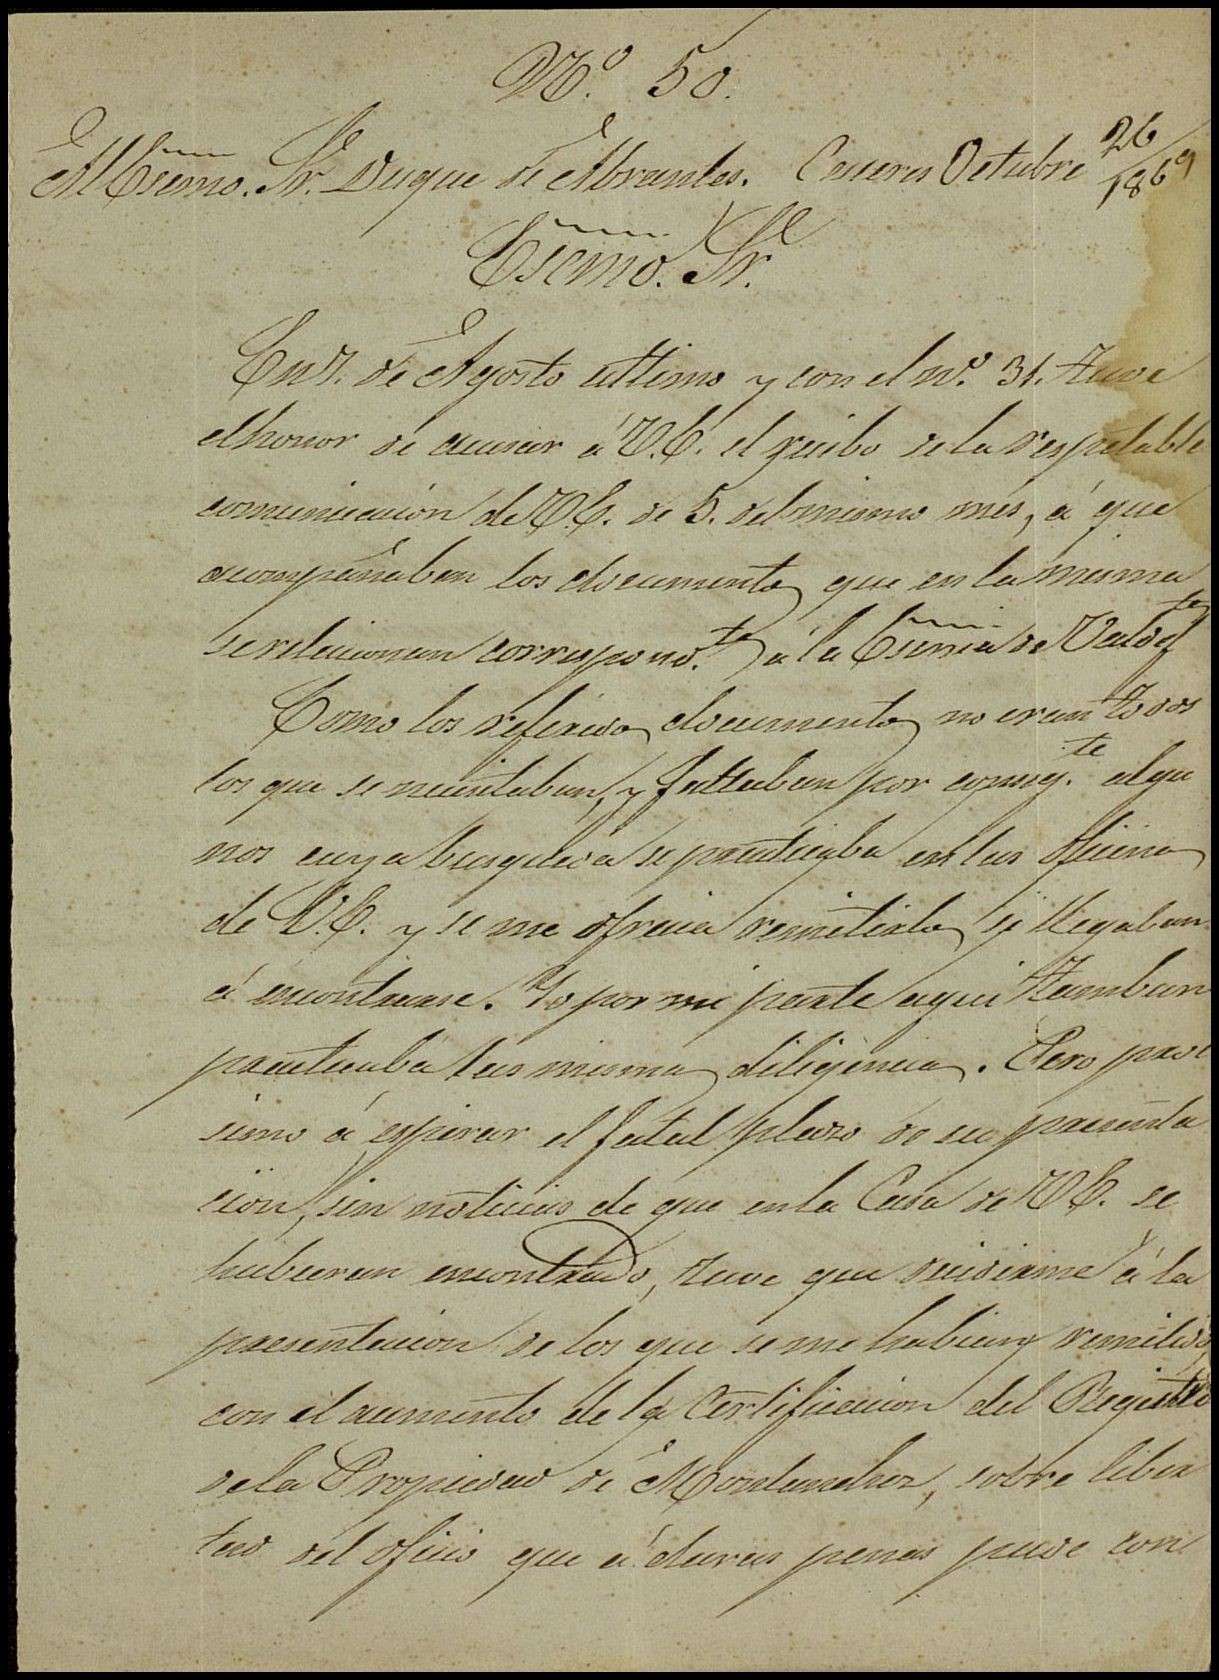 Nº. 50.
Al Escmo. Sr. Duque de Abrantes. Caceres Octubre 26/1869
Escmo. Sr.
En 7. de Agosto ultimo y con el nº. 31. tuve
el honor de acusar á V.E. el recibo de la respetable
comunicacion de V.E. de 5. del mismo mes, á que
acompañaban los documentos que en la misma
se relacionan correspond.tes á la Escma de
Como los referidos documentos no eran todos
los que se necesitaban, y faltaban por consig.te algu
nos cuya busqueda se practicaba en las oficinas
de V.E. y se me ofrecia remitirlos si llegaban
á encontrarse. Yo por mi parte aqui tambien
practicaba las mismas diligencias. Pero proc
simo á espirar el fatal plazo de su presenta
cion, sin noticias de que en la Casa de V.E. se
hubieran encontrado, tuve que decidirme á la
presentacion de los que se me habian remitido,
con el aumento de la Certificacion del Registro
de la Propiedad de Montanchez, sobre liber
tad del oficio que á duras penas pude con